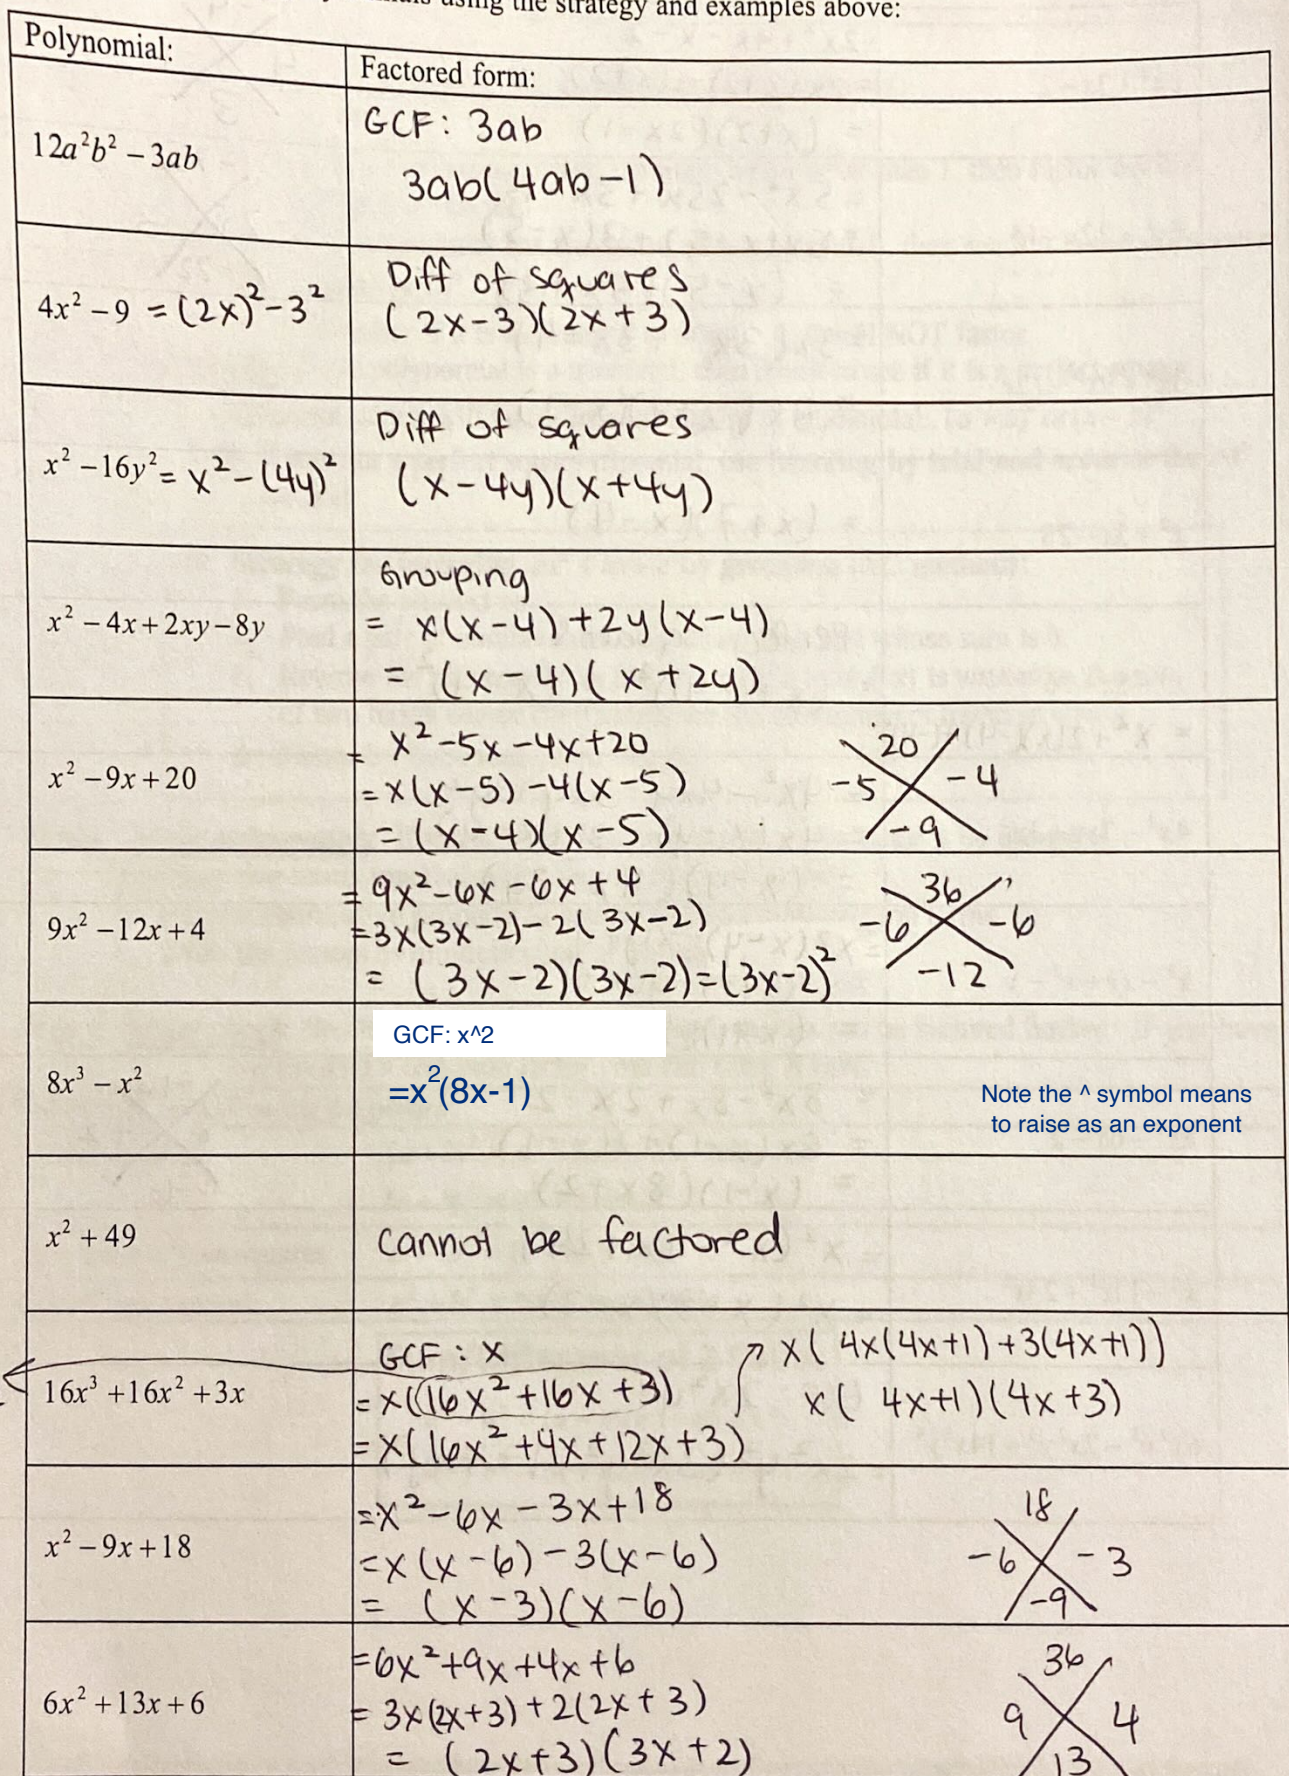 using the strategy and examples above:
Polynomial:
Factored form:
12a²b² − 3ab
GCF: 3ab
3ab(4ab−1)
4x² − 9 = (2x)² − 3²
Diff of squares
(2x−3)(2x+3)
x² − 16y² = x² − (4y)²
Diff of squares
(x−4y)(x+4y)
x² − 4x + 2xy − 8y
Grouping
= x(x−4) + 2y(x−4)
= (x−4)(x+2y)
x² − 9x + 20
= x² − 5x − 4x + 20
= x(x−5) − 4(x−5)
= (x−4)(x−5)
20
−5 −4
−9
9x² − 12x + 4
= 9x² − 6x − 6x + 4
= 3x(3x−2) − 2(3x−2)
= (3x−2)(3x−2) = (3x−2)²
36
−6 −6
−12
8x³ − x²
GCF: x^2
=x²(8x-1)
Note the ^ symbol means
to raise as an exponent
x² + 49
cannot be factored
16x³ + 16x² + 3x
GCF: x
= x((16x² + 16x + 3)
= x(16x² + 4x + 12x + 3)
x( 4x(4x+1) + 3(4x+1))
x( 4x+1)(4x+3)
x² − 9x + 18
= x² − 6x − 3x + 18
= x(x−6) − 3(x−6)
= (x−3)(x−6)
18
−6 −3
−9
6x² + 13x + 6
= 6x² + 9x + 4x + 6
= 3x(2x+3) + 2(2x+3)
= (2x+3)(3x+2)
36
9 4
13